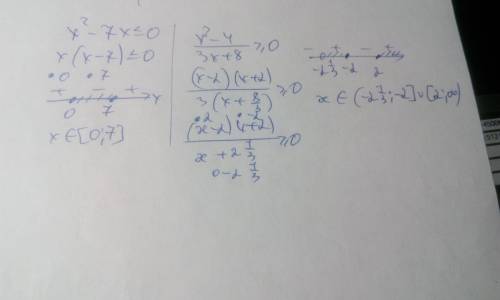 x² - 7x ≤ 0
x(x-7) ≤ 0
•0 •7
+ - + x
0 7
x ∈ [0;7]
x² - 4 / 3x+8 ≥ 0
(x-2)(x+2) / 3(x + 8/3) ≥ 0
•2 •-2
(x-2)(x+2) / x + 2 1/3 ≥ 0
o -2 1/3
- + - +
-2 1/3 -2 2
x ∈ (-2 1/3; -2] ∪ [2; ∞)